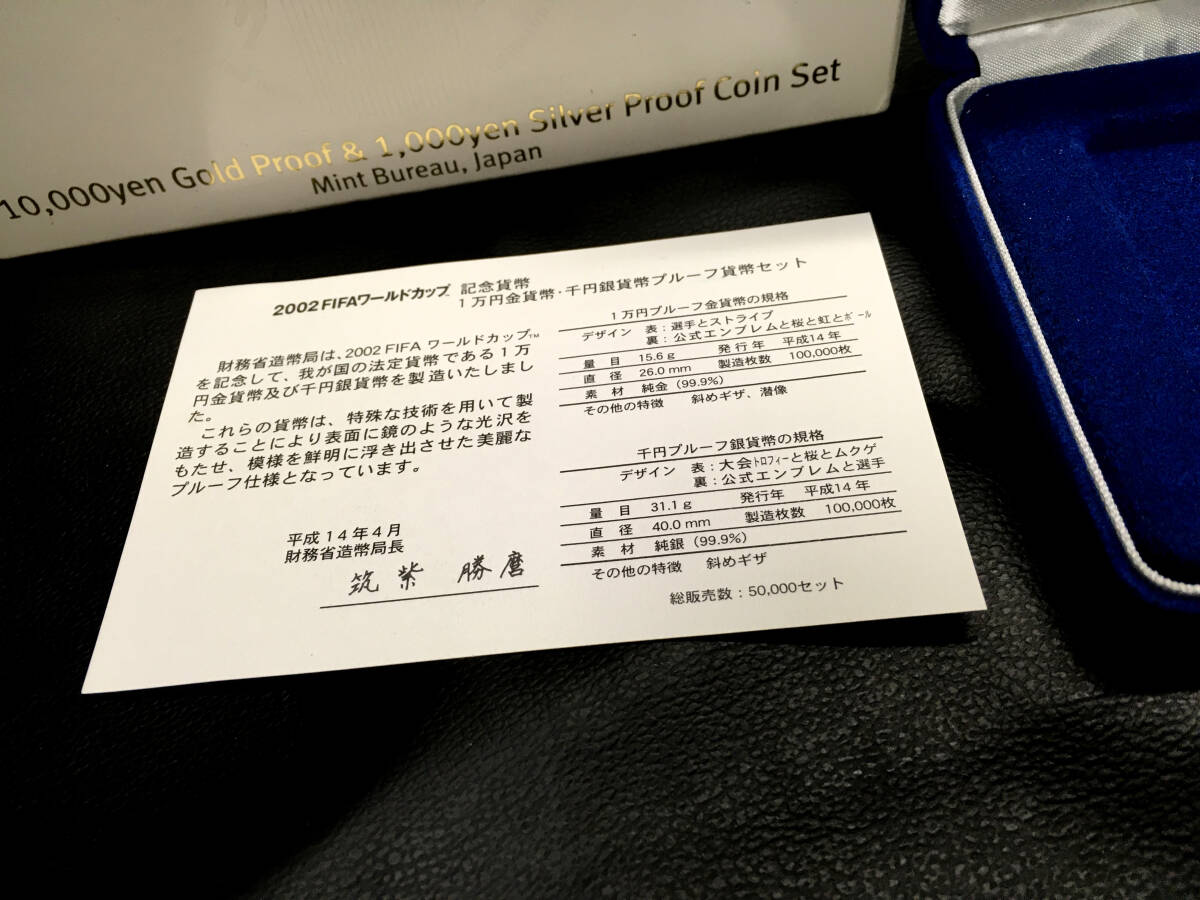 10,000yen Gold Proof & 1,000yen Silver Proof Coin Set
Mint Bureau, Japan
2002 FIFAワールドカップ™ 記念貨幣
1万円金貨幣・千円銀貨幣プルーフ貨幣セット
財務省造幣局は、2002 FIFA ワールドカップ™
を記念して、我が国の法定貨幣である1万
円金貨幣及び千円銀貨幣を製造いたしまし
た。
これらの貨幣は、特殊な技術を用いて製
造することにより表面に鏡のような光沢を
もたせ、模様を鮮明に浮き出させた美麗な
プルーフ仕様となっています。
平成14年4月
財務省造幣局長
筑紫 勝麿
1万円プルーフ金貨幣の規格
デザイン 表:選手とストライプ
裏:公式エンブレムと桜と虹とボール
量目 15.6 g 発行年 平成14年
直径 26.0 mm 製造枚数 100,000枚
素材 純金(99.9%)
その他の特徴 斜めギザ、潜像
千円プルーフ銀貨幣の規格
デザイン 表:大会トロフィーと桜とムクゲ
裏:公式エンブレムと選手
量目 31.1 g 発行年 平成14年
直径 40.0 mm 製造枚数 100,000枚
素材 純銀(99.9%)
その他の特徴 斜めギザ
総販売数:50,000セット